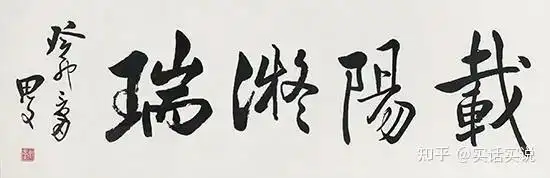 載陽凝瑞
癸卯
知乎 @实话实说